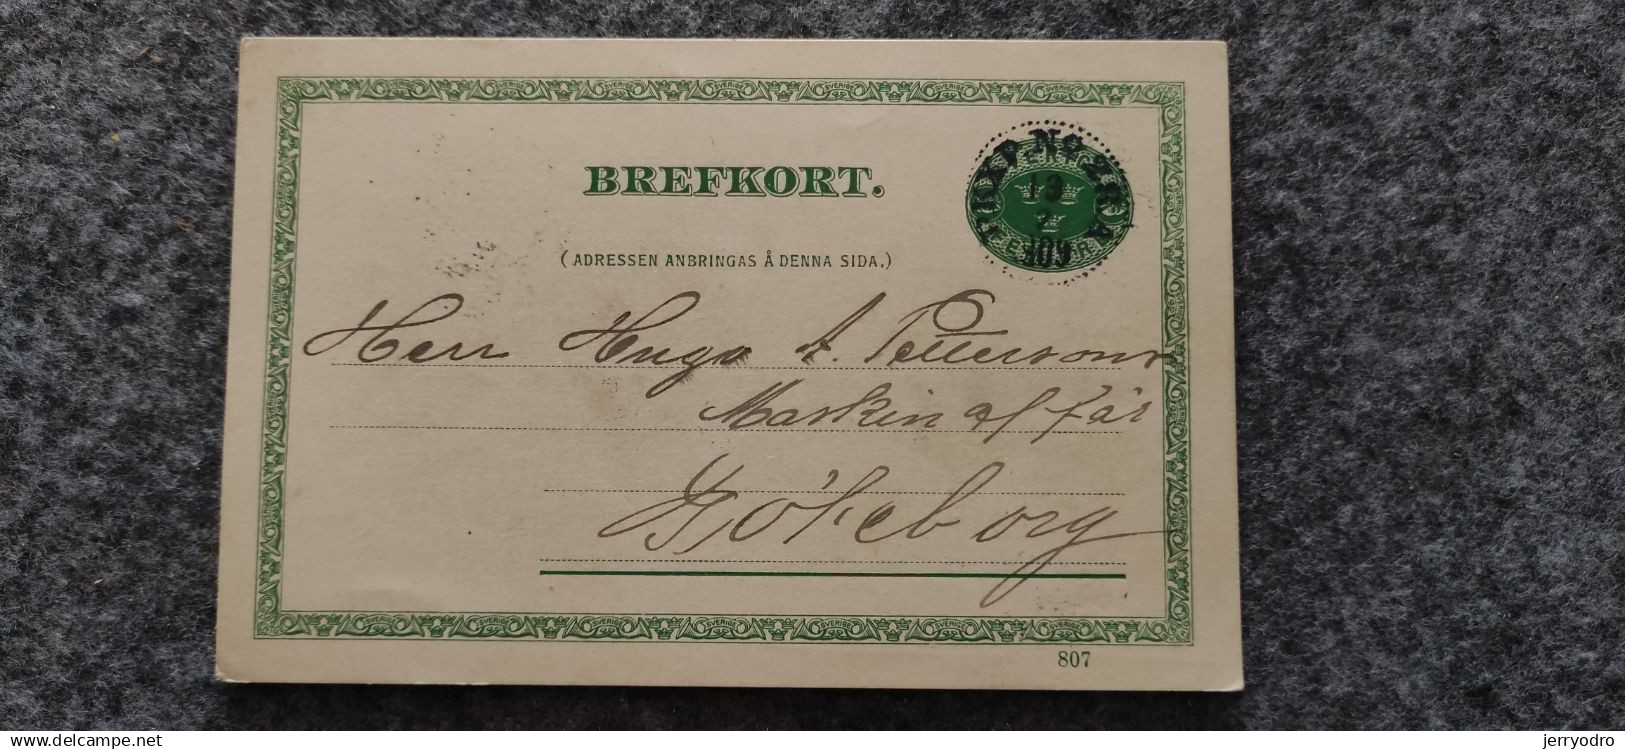 BREFKORT.
(ADRESSEN ANBRINGAS Å DENNA SIDA.)
13
2
Herr Hugo A. Petterssons
Maskinaffär
Göteborg
807
www.delcampe.net
jerryodro